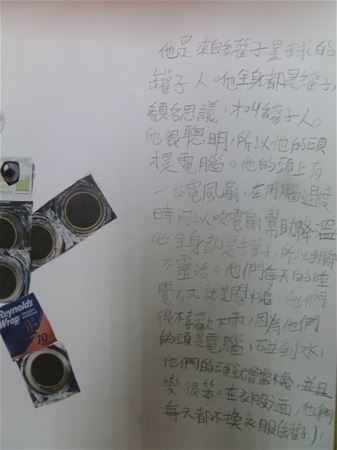 他是來自罐子星球的
罐子人。他全身都是罐子,
顧名思議,才叫罐子人。
他很聰明,所以他的頭
是電腦。他的頭上有
一台電風扇,在用腦過度
時可以吹電扇幫助降溫
他全身都是罐,所以手腳
不靈活。他們每天的睡
覺方式就是關機 他們
很不喜歡下雨,因為他們
的頭是電腦,碰到水,
他們的頭就會當機,並且
變很笨。在衣服方面,他們
每天都不換衣服(罐子),
Reynolds
Wrap
70